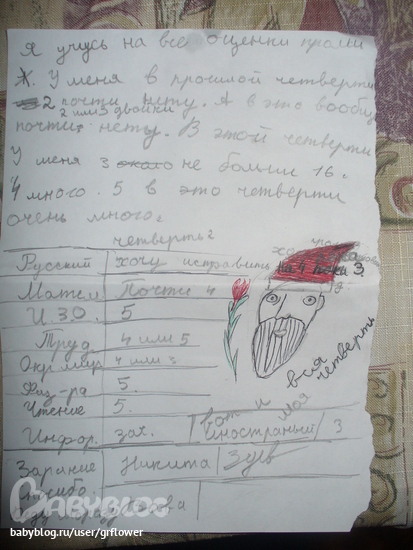 Я учусь на все оценки кромьи
Ж. У меня в прошлой четверти
2 почти нету. А в это вообщ
2 или 3 двойки
почти неты. В этой четверти
У меня 3 около не больши 16.
4 много. 5 в это четверти
очень много.
четверть 2
Русский хочу исправить на 4 пока 3
Матем Почти 4
ИЗО. 5
Труд 4 или 5
Окр. мир 4 или 3
Физ-ра 5.
Чтение 5.
Инфор. зач. иностраный 3
вот и моя вся четверть
Зарание Никита Зуев
спасибо
BABYBLOG
babyblog.ru/user/grflower